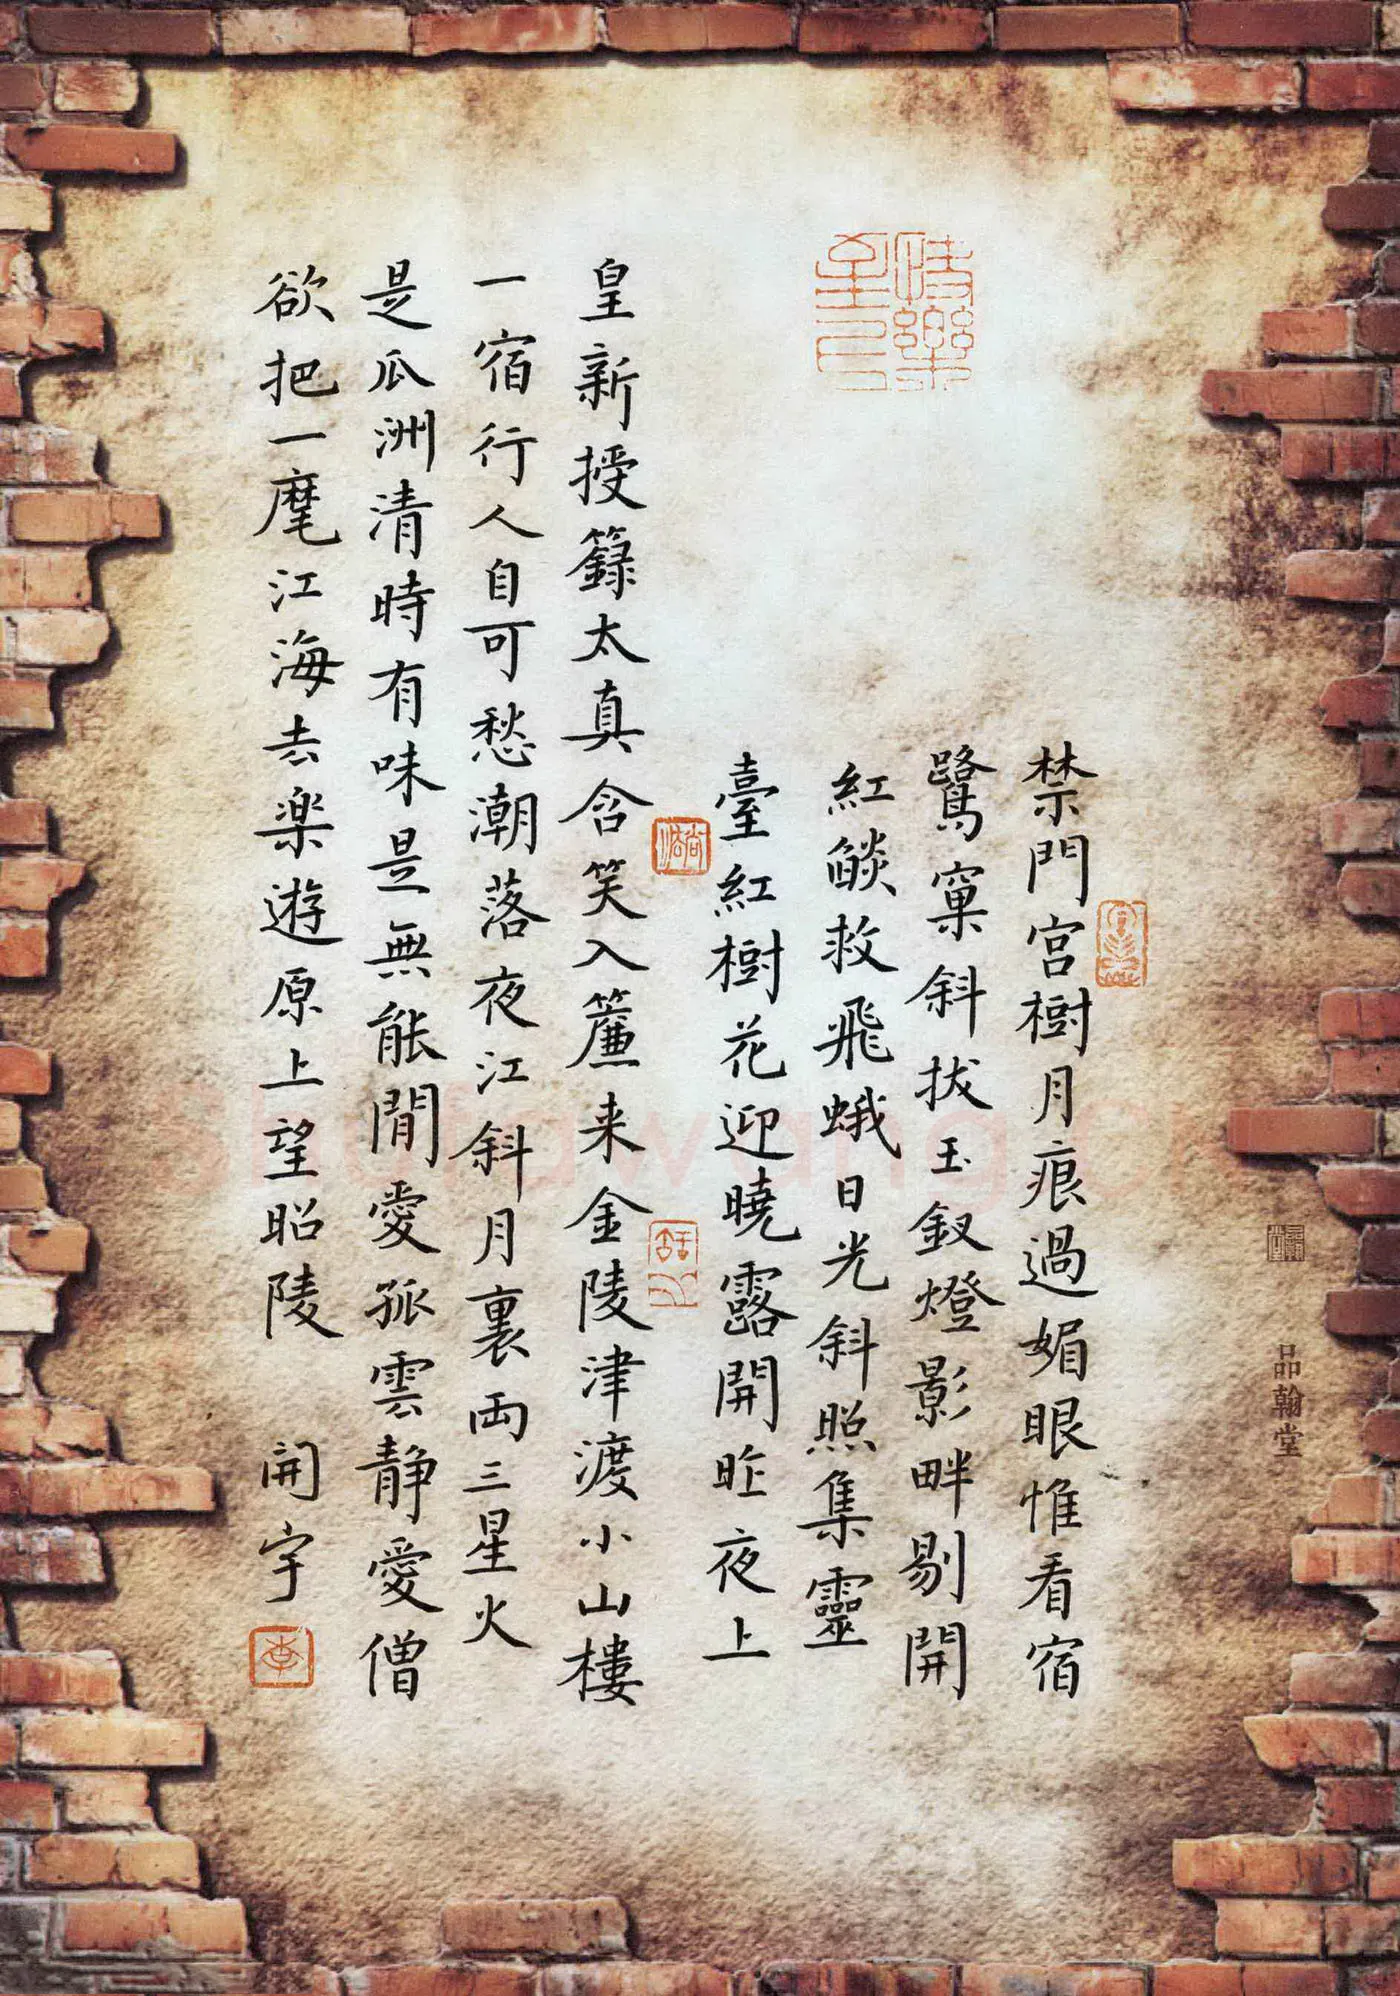 禁門宮樹月痕過媚眼惟看宿
鷺窠斜拔玉釵燈影畔剔開
紅燄救飛蛾日光斜照集靈
臺紅樹花迎曉露開昨夜上
皇新授籙太真含笑入簾来金陵津渡小山樓
一宿行人自可愁潮落夜江斜月裏両三星火
是瓜洲清時有味是無能閒愛孤雲静愛僧
欲把一麾江海去楽遊原上望昭陵
開宇
品翰堂